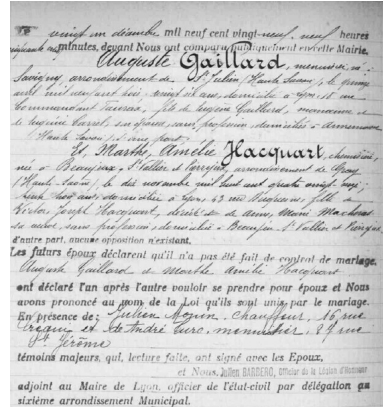 vingt un décembre mil neuf cent vingt-neuf, neuf heures
minutes, devant Nous ont comparu publiquement en cette Mairie,
Auguste Gaillard, menuisier né à
Savigny arrondissement de St Julien (Haute Savoie), le quinze
août mil neuf cent trois, vingt six ans, domicilié à Lyon, 18 rue
Commandant Faurax, fils de Eugène Gaillard, menuisier et
de Eugénie sa épouse, sans profession, domiciliés à Annemasse
(Haute Savoie), d'une part.
Et Marthe, Amélie Hacquart, chemisière,
née à Beaujeu St Vallier et Pierrejux, arrondissement de Gray
(Haute Saône), le dix novembre mil huit cent quatre vingt
ans, domiciliée à Lyon, 43 rue fille de
Joseph Hacquart, décédé et de Marie
sa veuve, sans profession, domiciliée à Beaujeu St Vallier et Pierrejux
d'autre part, aucune opposition n'existant.
Les futurs époux déclarent qu'il n'a pas été fait de contrat de mariage.
Auguste Gaillard et Marthe Amélie Hacquart
ont déclaré l'un après l'autre vouloir se prendre pour époux et Nous
avons prononcé au nom de la Loi qu'ils sont unis par le mariage.
En présence de; Julien chauffeur, 16 rue
et de André menuisier, 27 rue
St Jérôme
témoins majeurs, qui, lecture faite, ont signé avec les Epoux,
et Nous, Julien BARBERO, Officier de la Légion d'Honneur
adjoint au Maire de Lyon, officier de l'état-civil par délégation au
sixième arrondissement Municipal.